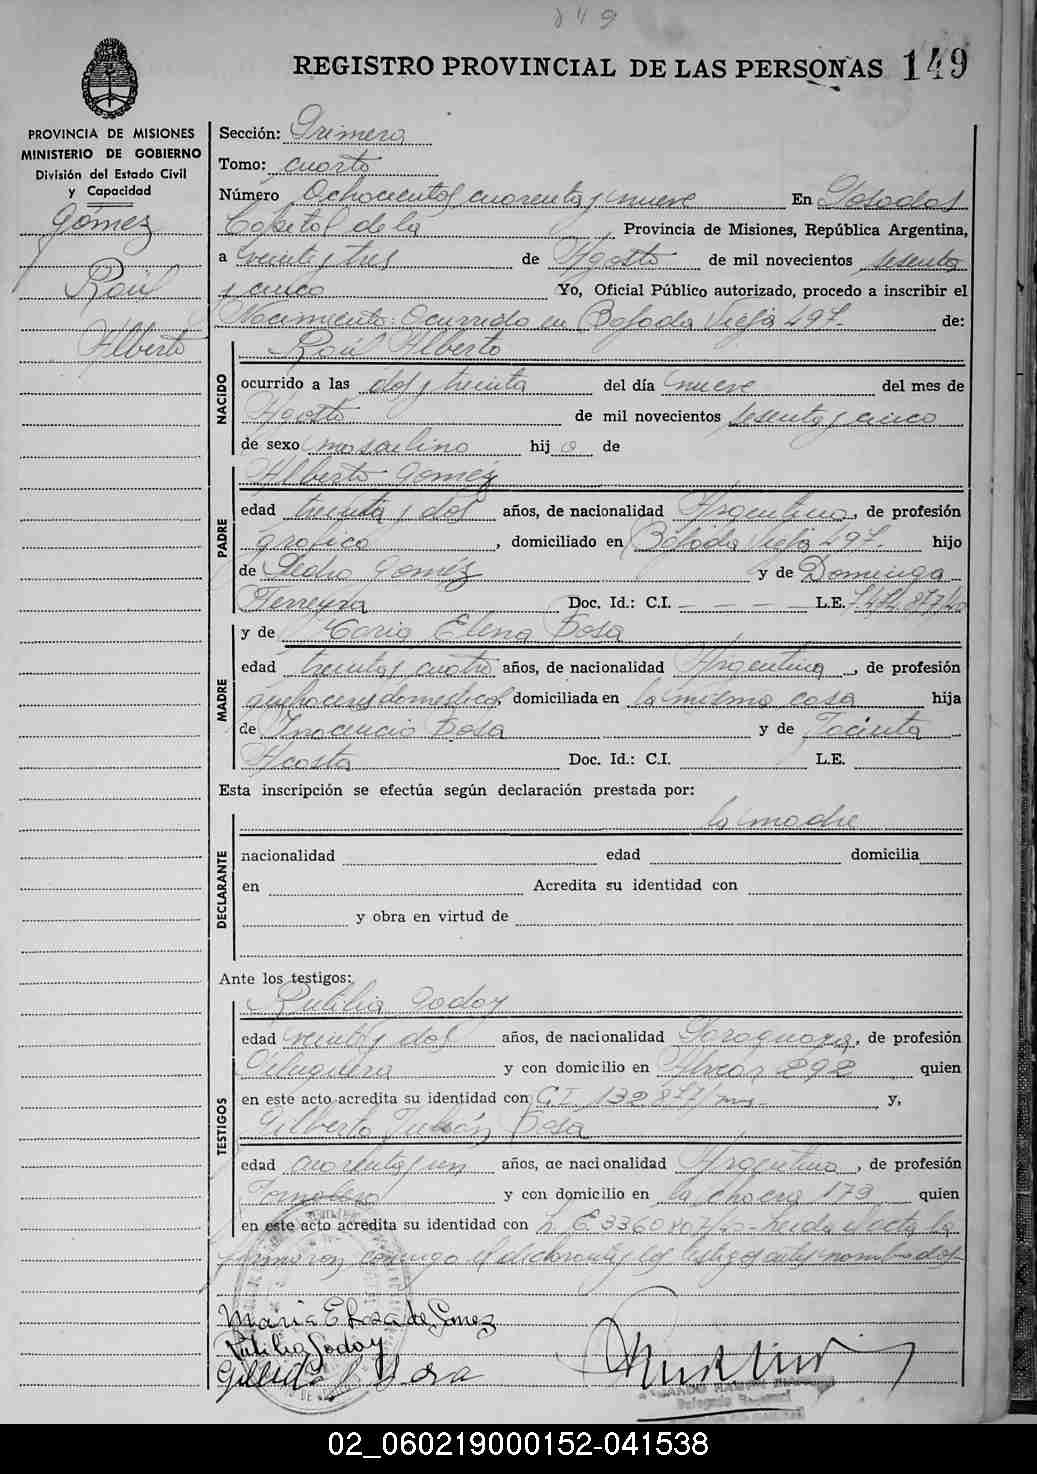 849
REGISTRO PROVINCIAL DE LAS PERSONAS 149
PROVINCIA DE MISIONES
MINISTERIO DE GOBIERNO
División del Estado Civil
y Capacidad
Gómez
Raúl
Alberto
Sección: Primera
Tomo: cuarto
Número Ochocientos cuarenta y nueve En Posadas
Capital de la Provincia de Misiones, República Argentina,
a veinte y tres de Agosto de mil novecientos sesenta
y cinco Yo, Oficial Público autorizado, procedo a inscribir el
Nacimiento: Ocurrido en Bajada Vieja 297- de:
NACIDO
Raúl Alberto
ocurrido a las dos y treinta del día nueve del mes de
Agosto de mil novecientos sesenta y cinco
de sexo masculino hijo de
PADRE
Alberto Gomez
edad treinta y dos años, de nacionalidad Argentina, de profesión
gráfico, domiciliado en Bajada Vieja 297- hijo
de Pedro Gomez y de Dominga
Ferreyra Doc. Id.: C.I. — — — — L.E.
MADRE
y de María Elena Sosa
edad treinta y cuatro años, de nacionalidad Argentina, de profesión
quehaceres domesticos, domiciliada en la misma casa hija
de Inocencio Sosa y de Jacinta
Acosta Doc. Id.: C.I. L.E.
Esta inscripción se efectúa según declaración prestada por:
DECLARANTE
la madre
nacionalidad edad domicilia
en Acredita su identidad con
y obra en virtud de
Ante los testigos:
TESTIGOS
Rutilia Godoy
edad veinte y dos años, de nacionalidad Paraguaya, de profesión
Peluquera y con domicilio en 292 quien
en este acto acredita su identidad con C.I. 132877/mns- y,
Gilberto Julián Sosa
edad cuarenta y un años, de nacionalidad Argentina, de profesión
Jornalero y con domicilio en la chacra 179 quien
en este acto acredita su identidad con L.E. 3360807/40- Leida el acta la
firmaron conmigo el declarante y los testigos antes nombrados-
Maria E Sosa de Gomez
Rutilia Godoy
Gilberto J Sosa
02_060219000152-041538